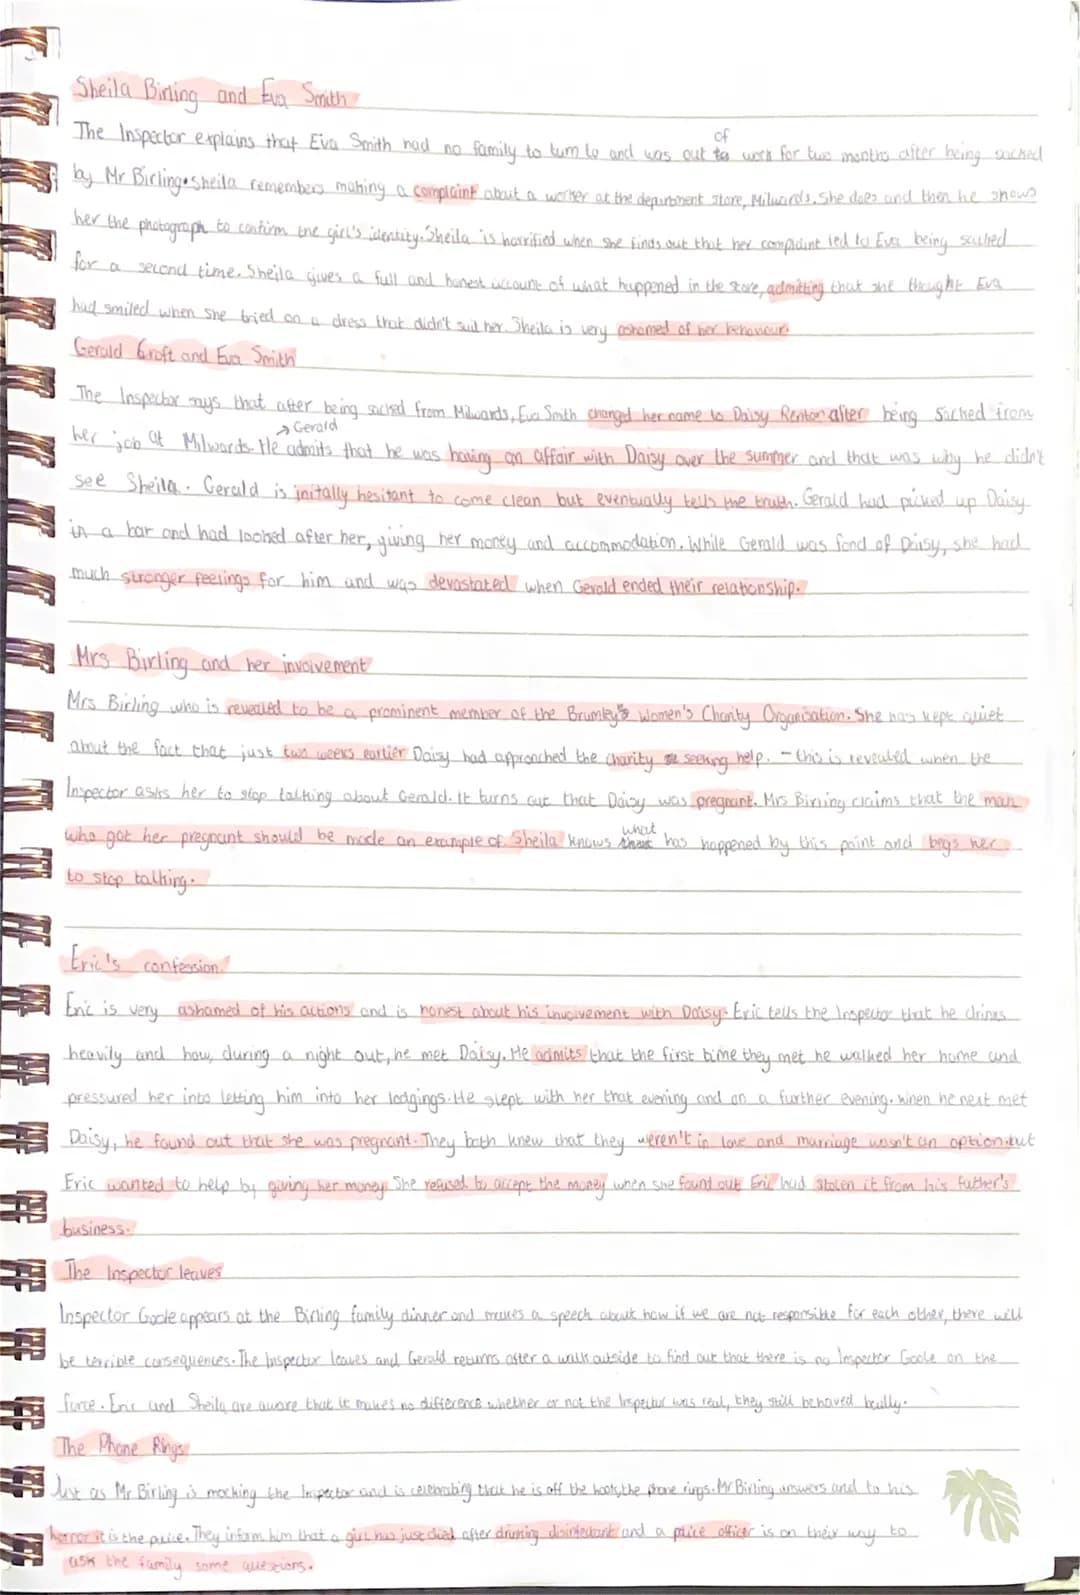 Sheila Birling and Eva Smith
of
The Inspector explains that Eva Smith had no family to turn to and was out to work for two months after being sacked
by Mr Birling. Sheila remembers making a complaint about a worker at the department store, Milwards. She does and then he shows
her the photograph to confirm the girl's identity. Sheila is horrified when she finds out that her complaint led to Eva being sacked
for a second time. Sheila gives a full and honest account of what happened in the store, admitting that she thought Eva
had smiled when she tried on a dress that didn't suit her. Sheila is very ashamed of her behaviour.
Gerald Croft and Eva Smith
The Inspector says that after being sacked from Milwards, Eva Smith changed her name to Daisy Renton after being sacked from
→ Gerald
her job at Milwards. He admits that he was having an affair with Daisy over the summer and that was why he didn't
see Sheila. Gerald is initally hesitant to come clean but eventually tells the truth. Gerald had picked up Daisy
in a bar and had looked after her, giving her money and accommodation. While Gerald was fond of Daisy, she had
much stronger feelings for him and was devastated when Gerald ended their relationship.
Mrs Birling and her involvement
Mrs Birling who is revealed to be a prominent member of the Brumley's Women's Charity Organisation. She has kept quiet
about the fact that just two weeks earlier Daisy had approached the charity seeking help. - this is revealed when the
Inspector asks her to stop talking about Gerald. It turns out that Daisy was pregnant. Mrs Birling claims that the man
what
who got her pregnant should be made an example of. Sheila knows has happened by this point and begs her
to stop talking.
Eric's confession
Eric is very ashamed of his actions and is honest about his involvement with Daisy. Eric tells the Inspector that he drinks
heavily and how, during a night out, he met Daisy. He admits that the first time they met he walked her home and
pressured her into letting him into her lodgings. He slept with her that evening and on a further evening. When he next met
Daisy, he found out that she was pregnant. They both knew that they weren't in love and marriage wasn't an option but
Eric wanted to help by giving her money. She refused to accept the money when she found out Eric had stolen it from his father's
business.
The Inspector leaves
Inspector Goole appears at the Birling family dinner and makes a speech about how if we are not responsible for each other, there will
be terrible consequences. The Inspector leaves and Gerald returns after a walk outside to find out that there is no Inspector Goole on the
force. Eric and Sheila are aware that it makes no difference whether or not the Inspector was real, they still behaved badly.
The Phone Rings
Just as Mr Birling is mocking the Inspector and is celebrating that he is off the hook, the phone rings. Mr Birling answers and to his
horror it is the police. They inform him that a girl has just died after drinking disinfectant and a police officer is on their way to
ask the family some questions.